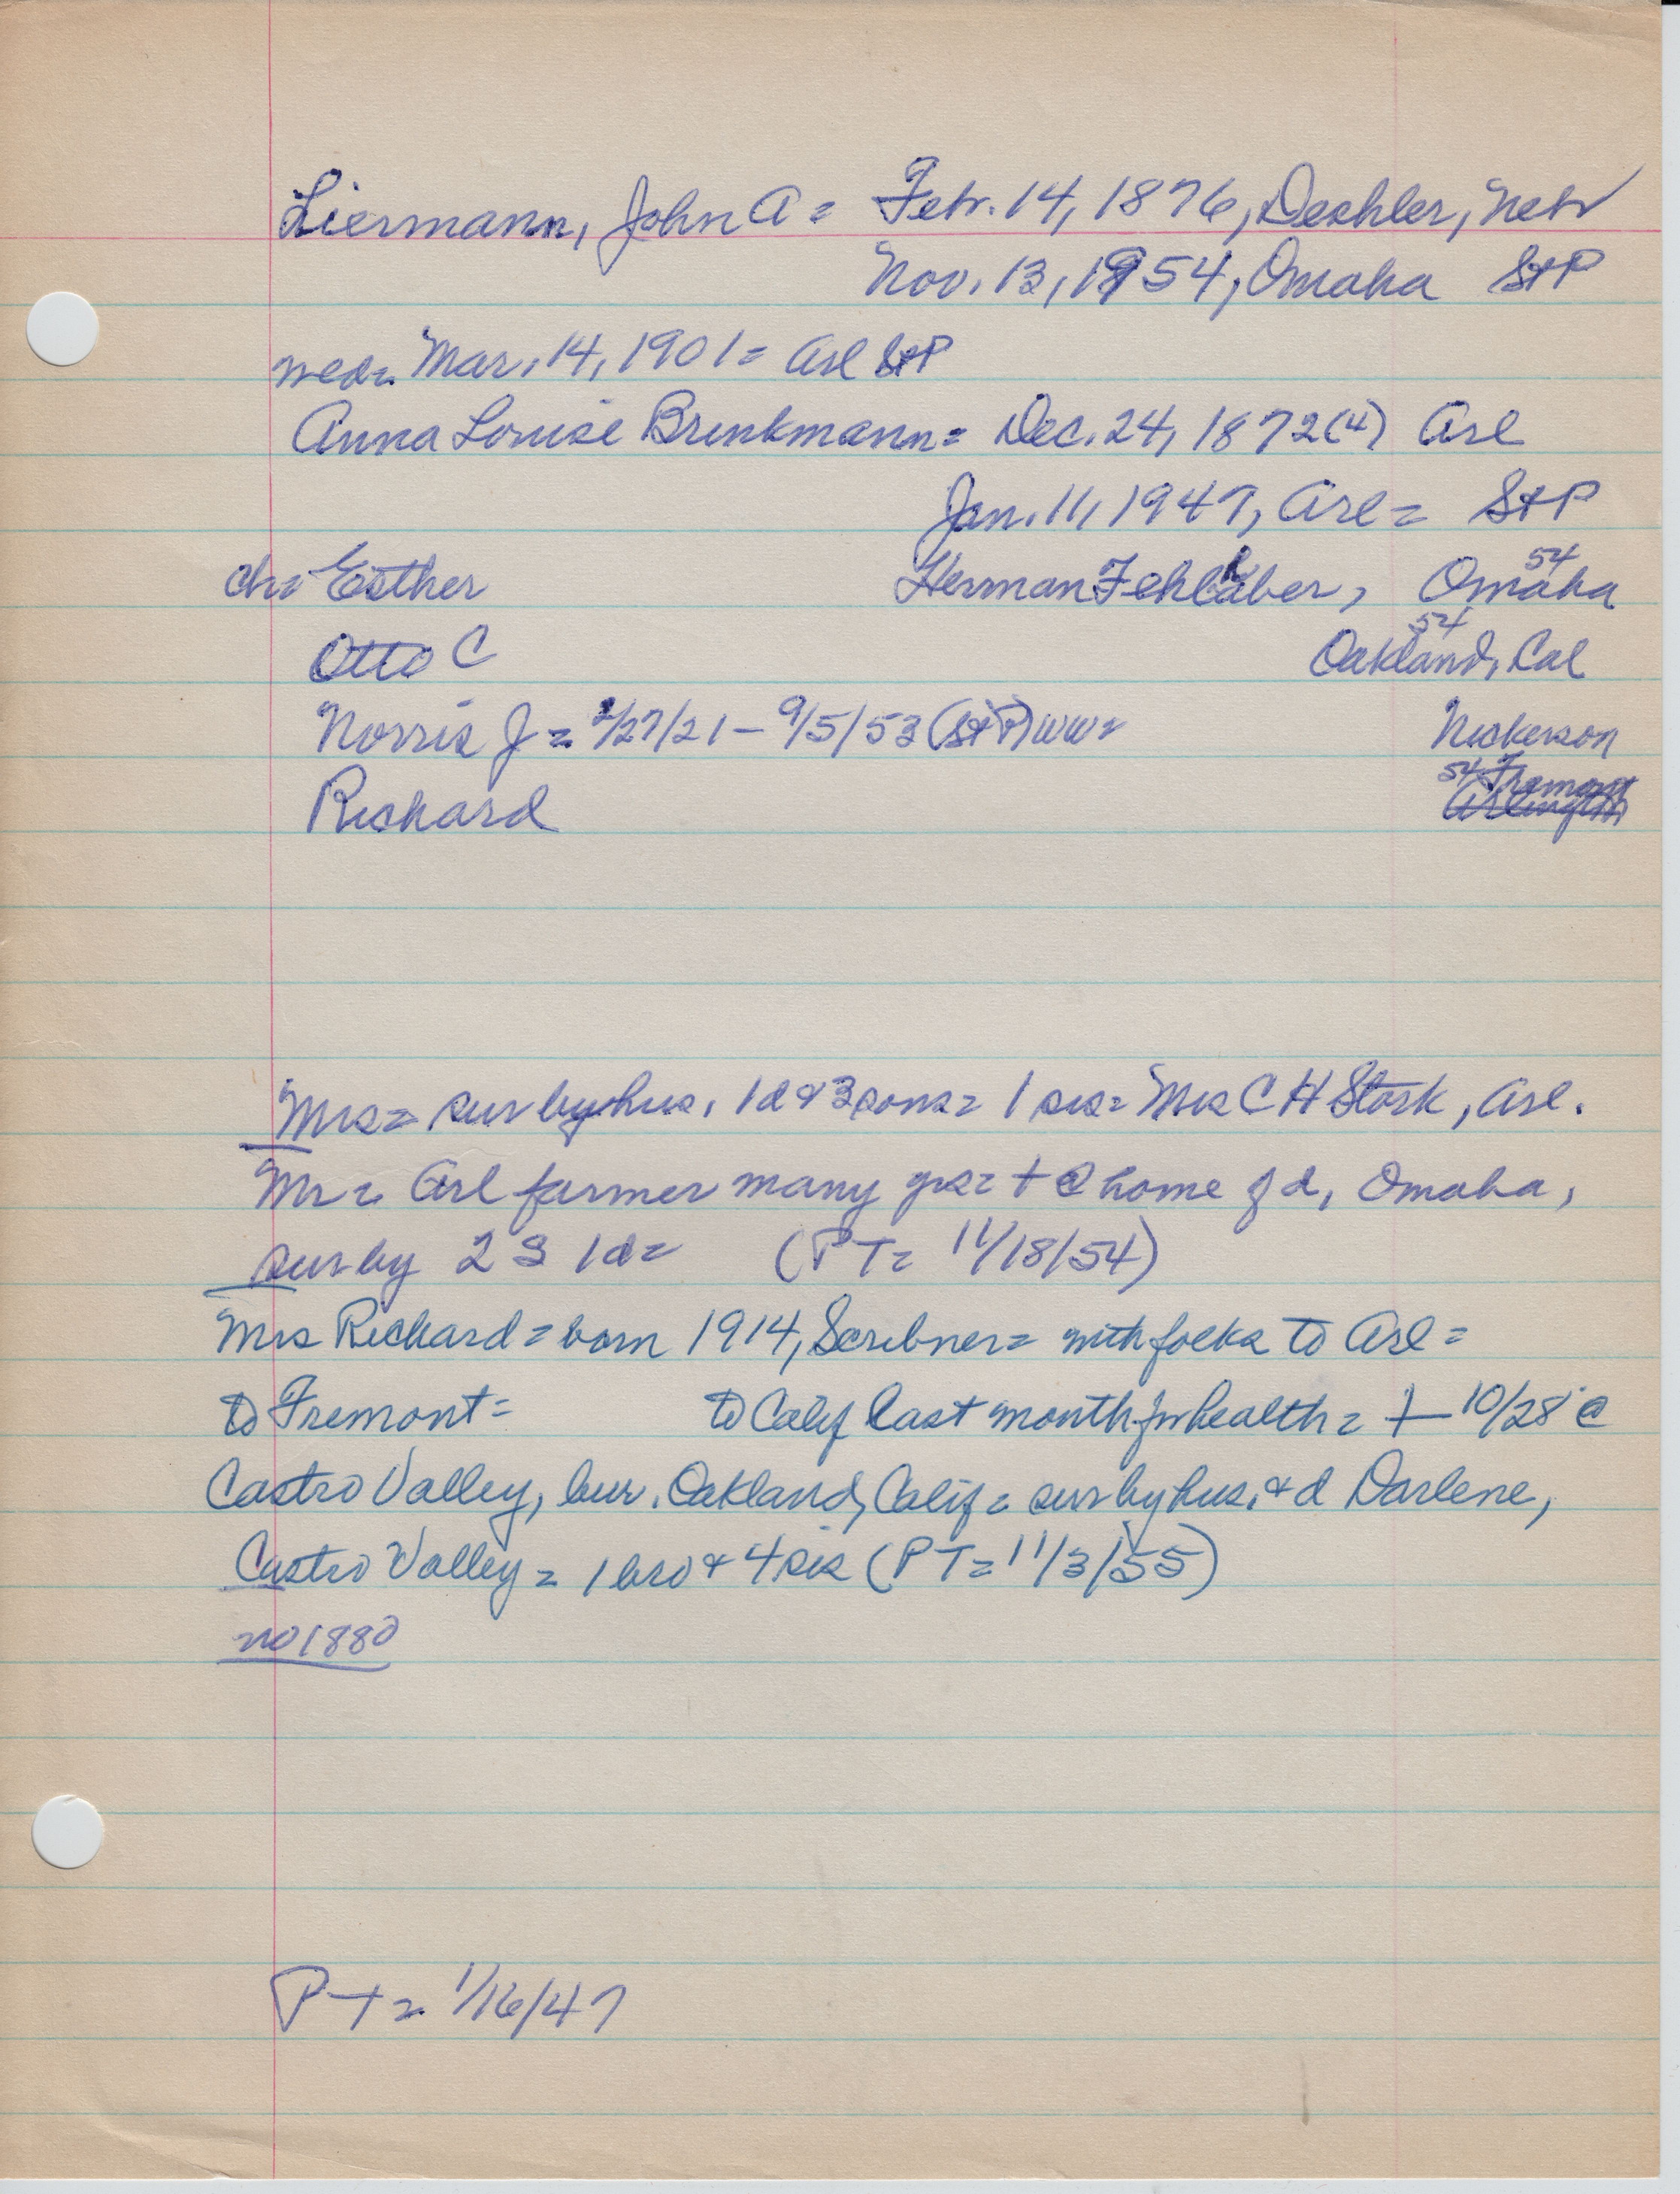 Liermann, John A = Febr. 14, 1876, Deshler, Nebr
Nov. 13, 1954, Omaha St P
wed= Mar. 14, 1901 = Arl St P
Anna Louise Brinkmann = Dec. 24, 1872(4) Arl
Jan. 11, 1947, Arl = St P
ch= Esther Herman Fehlhaber, Omaha 54
Otto C Oakland, Cal 54
Norris J = /27/21 - 9/5/53 (St P) WW2 Nickerson
Richard 54 Fremont
Arlington
Mrs = sur by hus, 1 d & 3 sons = 1 sis = Mrs C H Stork, Arl.
Mr = Arl farmer many yrs = + @ home of d, Omaha,
sur by 2 S 1 d = (P T = 11/18/54)
Mrs Richard = born 1914, Scribner = with folks to Arl =
to Fremont = to Calif last month for health = + 10/28 @
Castro Valley, bur. Oakland, Calif = sur by hus. & d Darlene,
Castro Valley = 1 bro & 4 sis (P T = 11/3/55)
no 1880
P T = 1/16/47